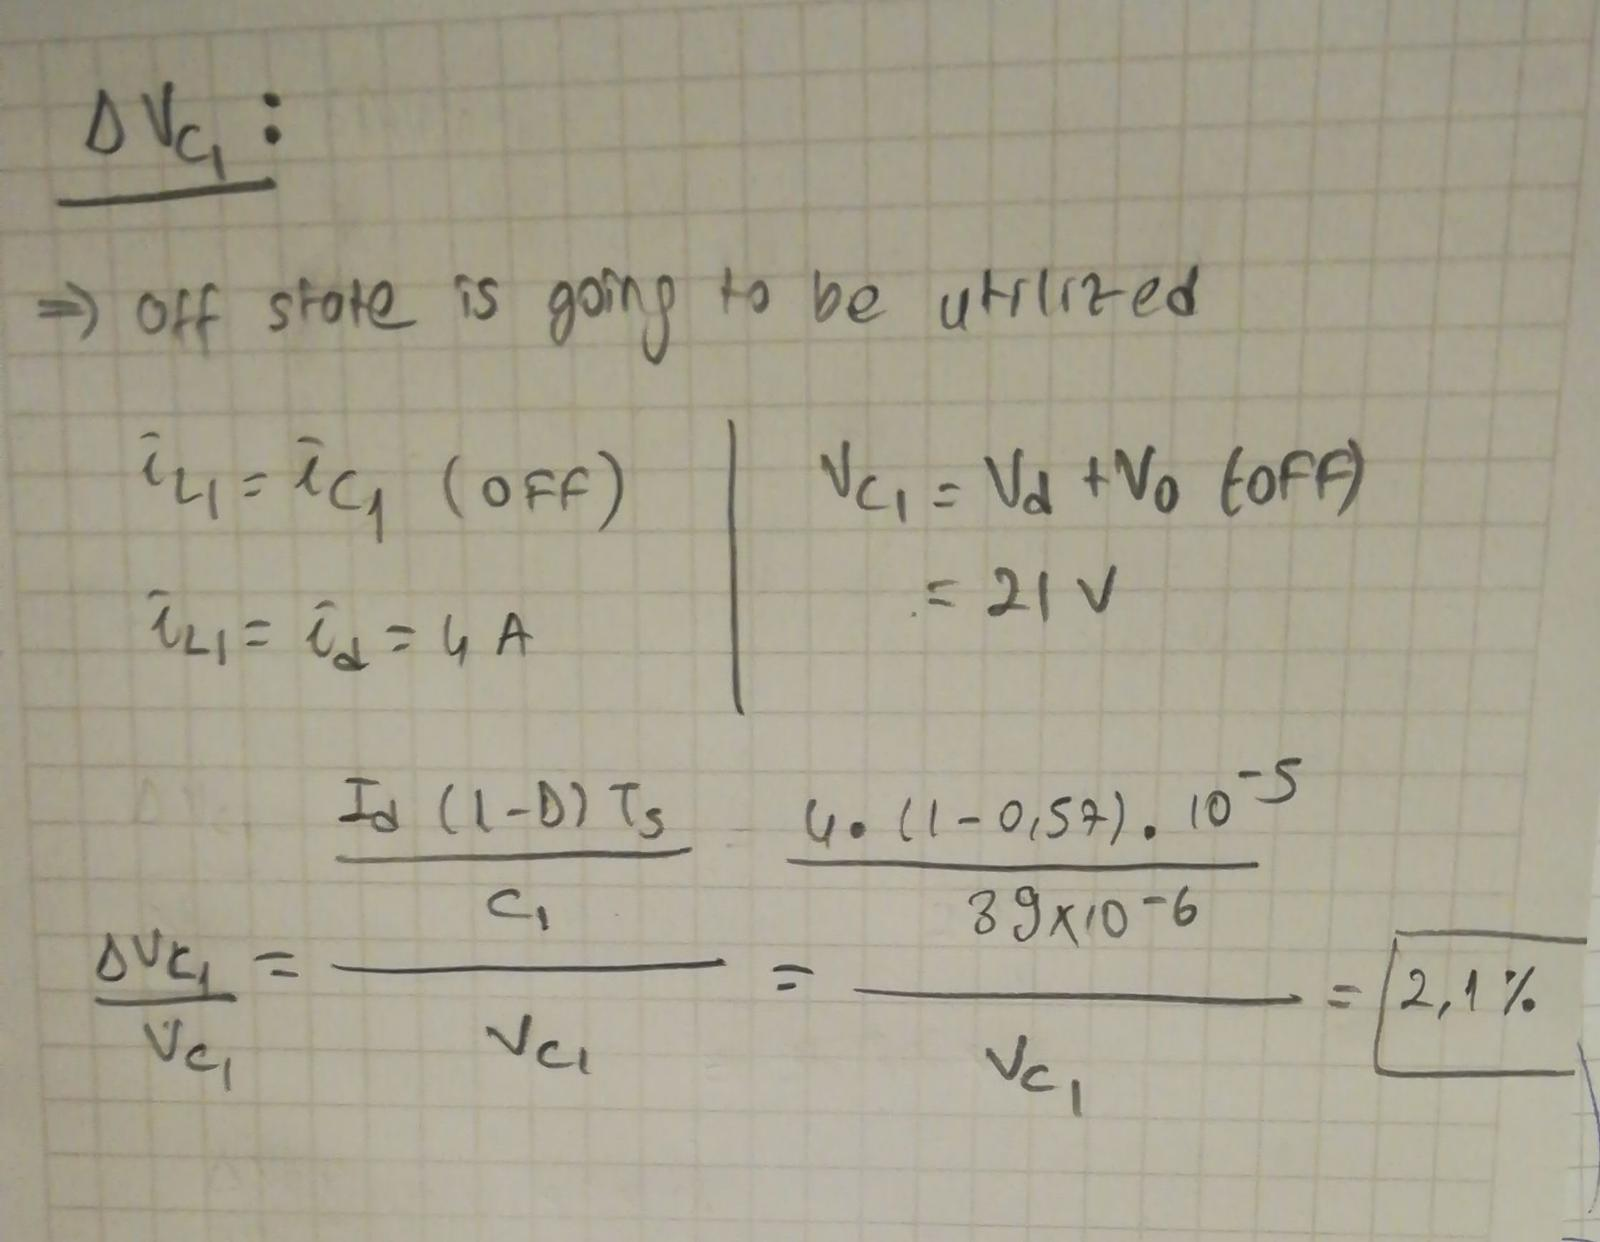 ΔVC1 :
⇒ off state is going to be utilized
īL1 = īC1 (OFF)
īL1 = īd = 4 A
VC1 = Vd + Vo (OFF)
= 21 V
ΔVC1 / VC1 = (Id (1-D) Ts / C1) / VC1 = (4 . (1-0,57) . 10^-5 / 39x10^-6) / VC1 = 2,1 %